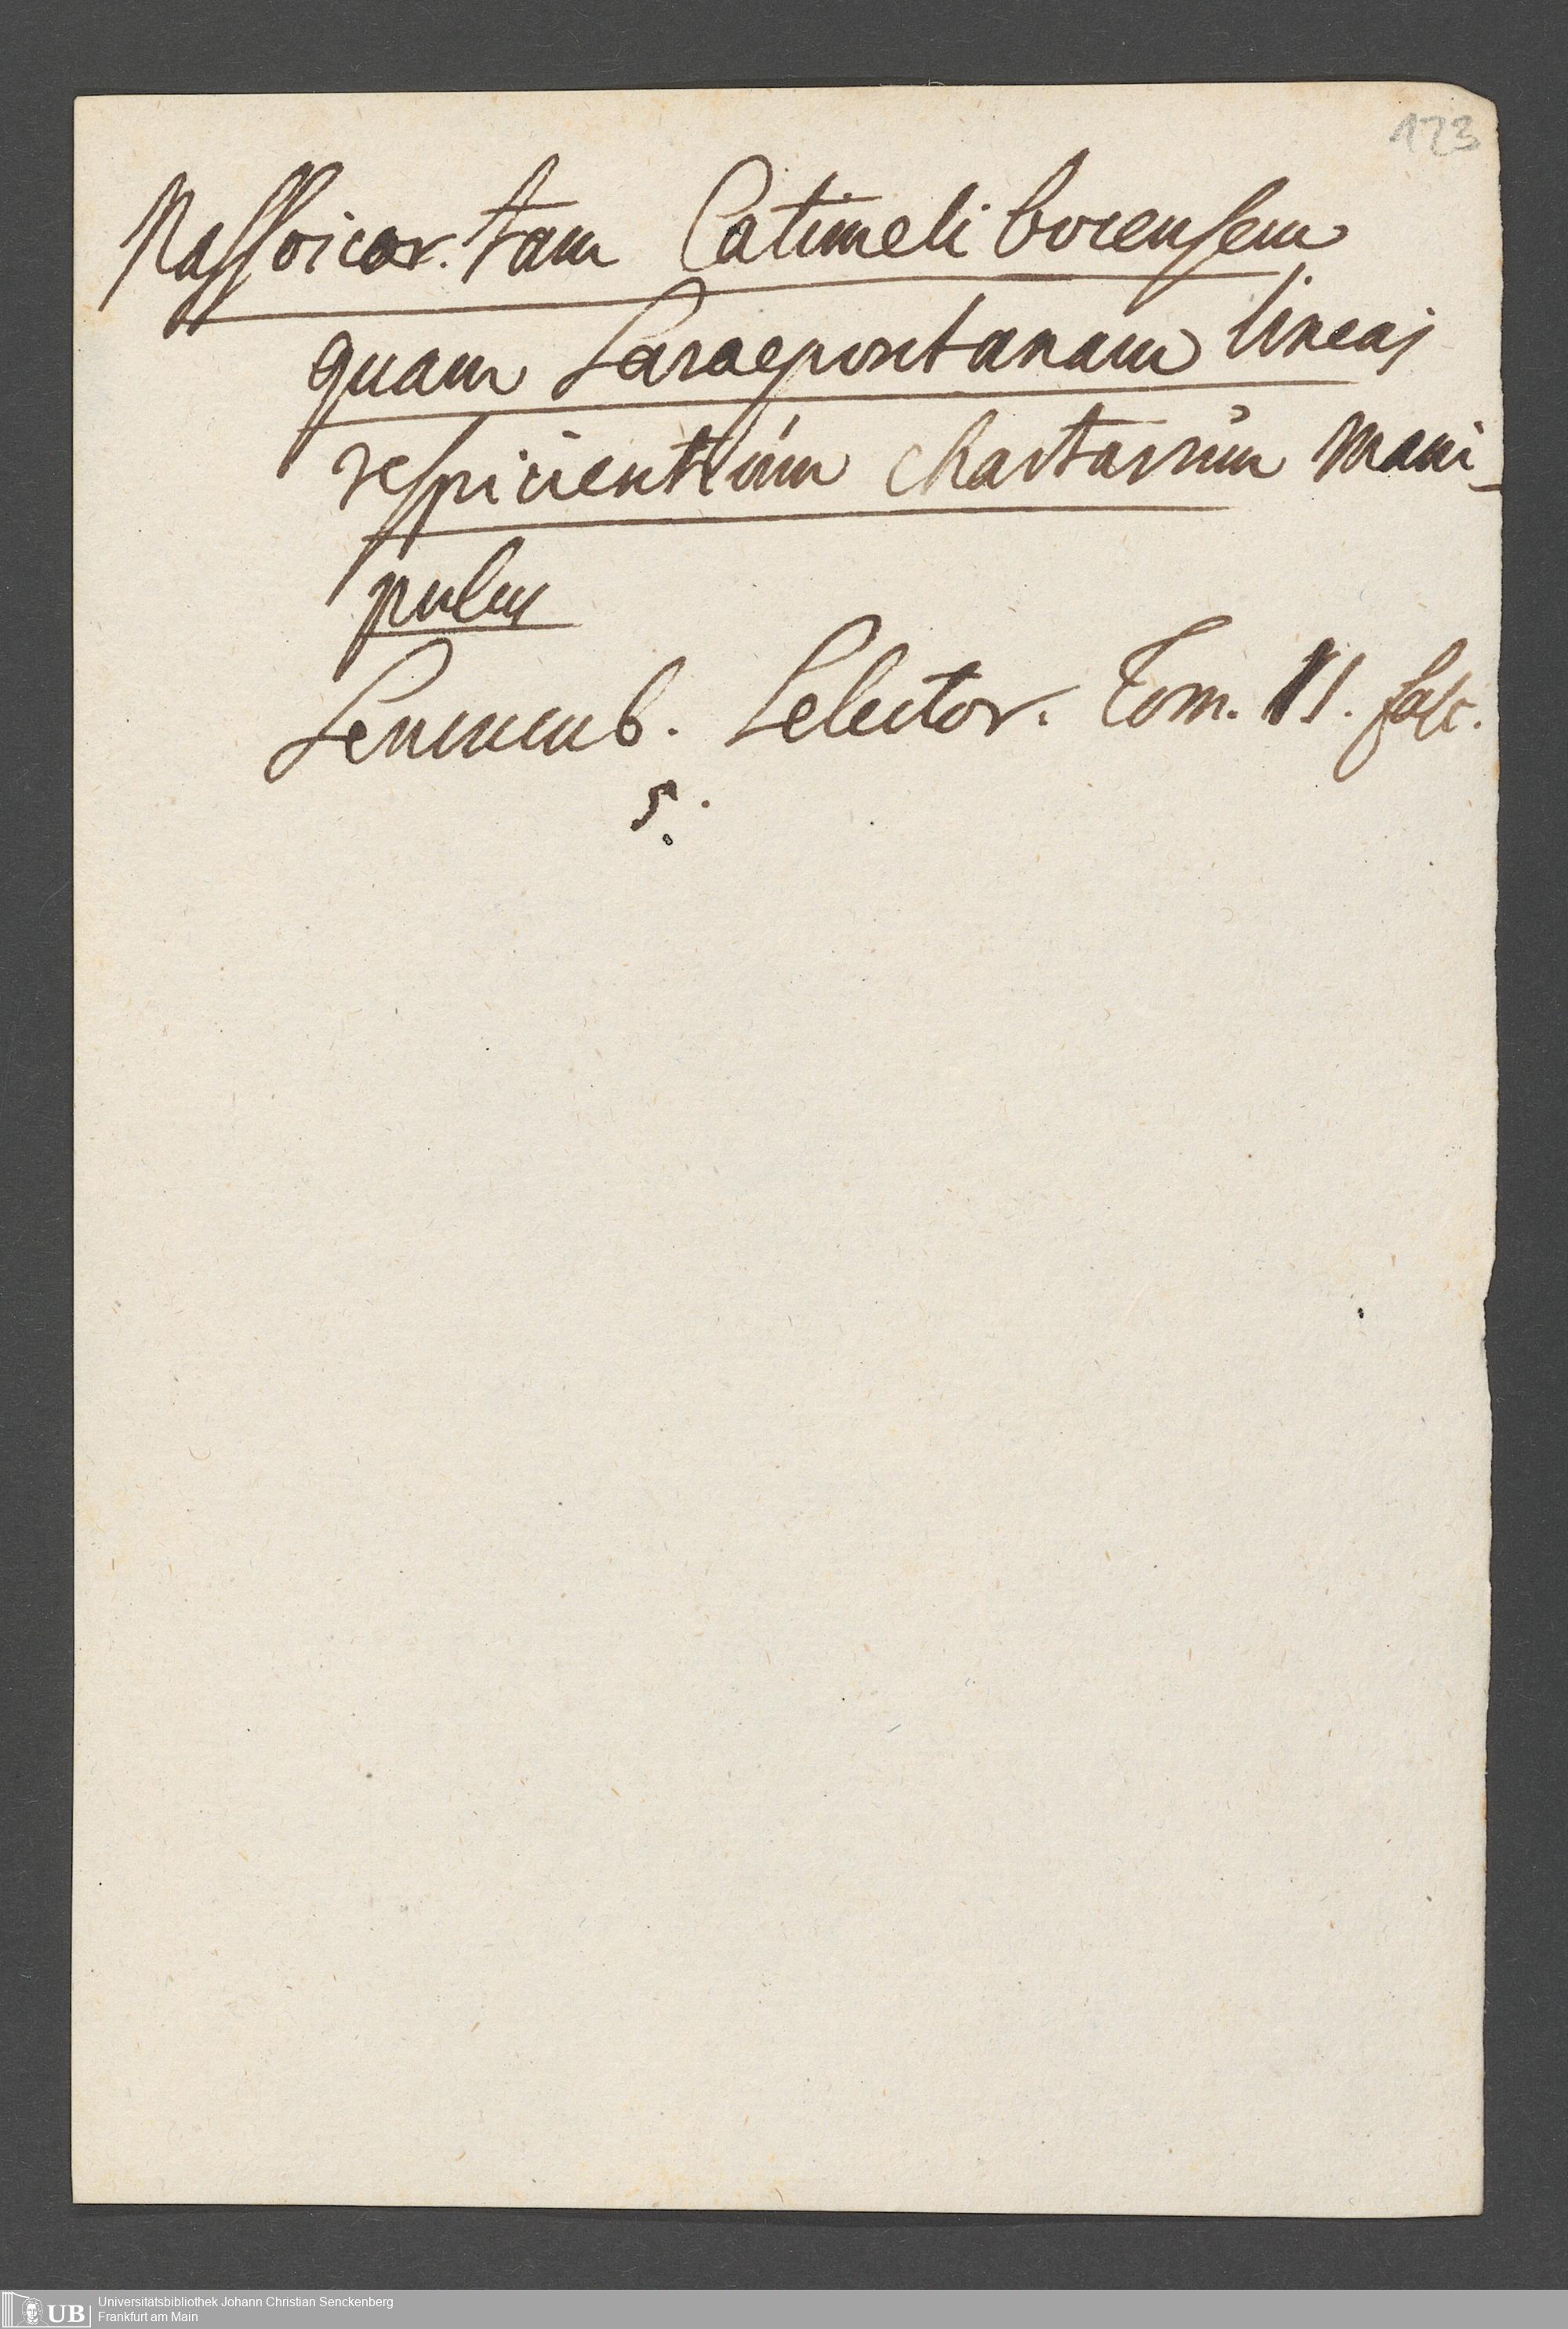 123
Nassoicor. tam Catimelibocensem
quam Saraepontanam lineas
respicientium chartarum mani-
pulus
Sencucnb. Selector. Tom. II. fasc.
5.
UB Universitätsbibliothek Johann Christian Senckenberg
Frankfurt am Main